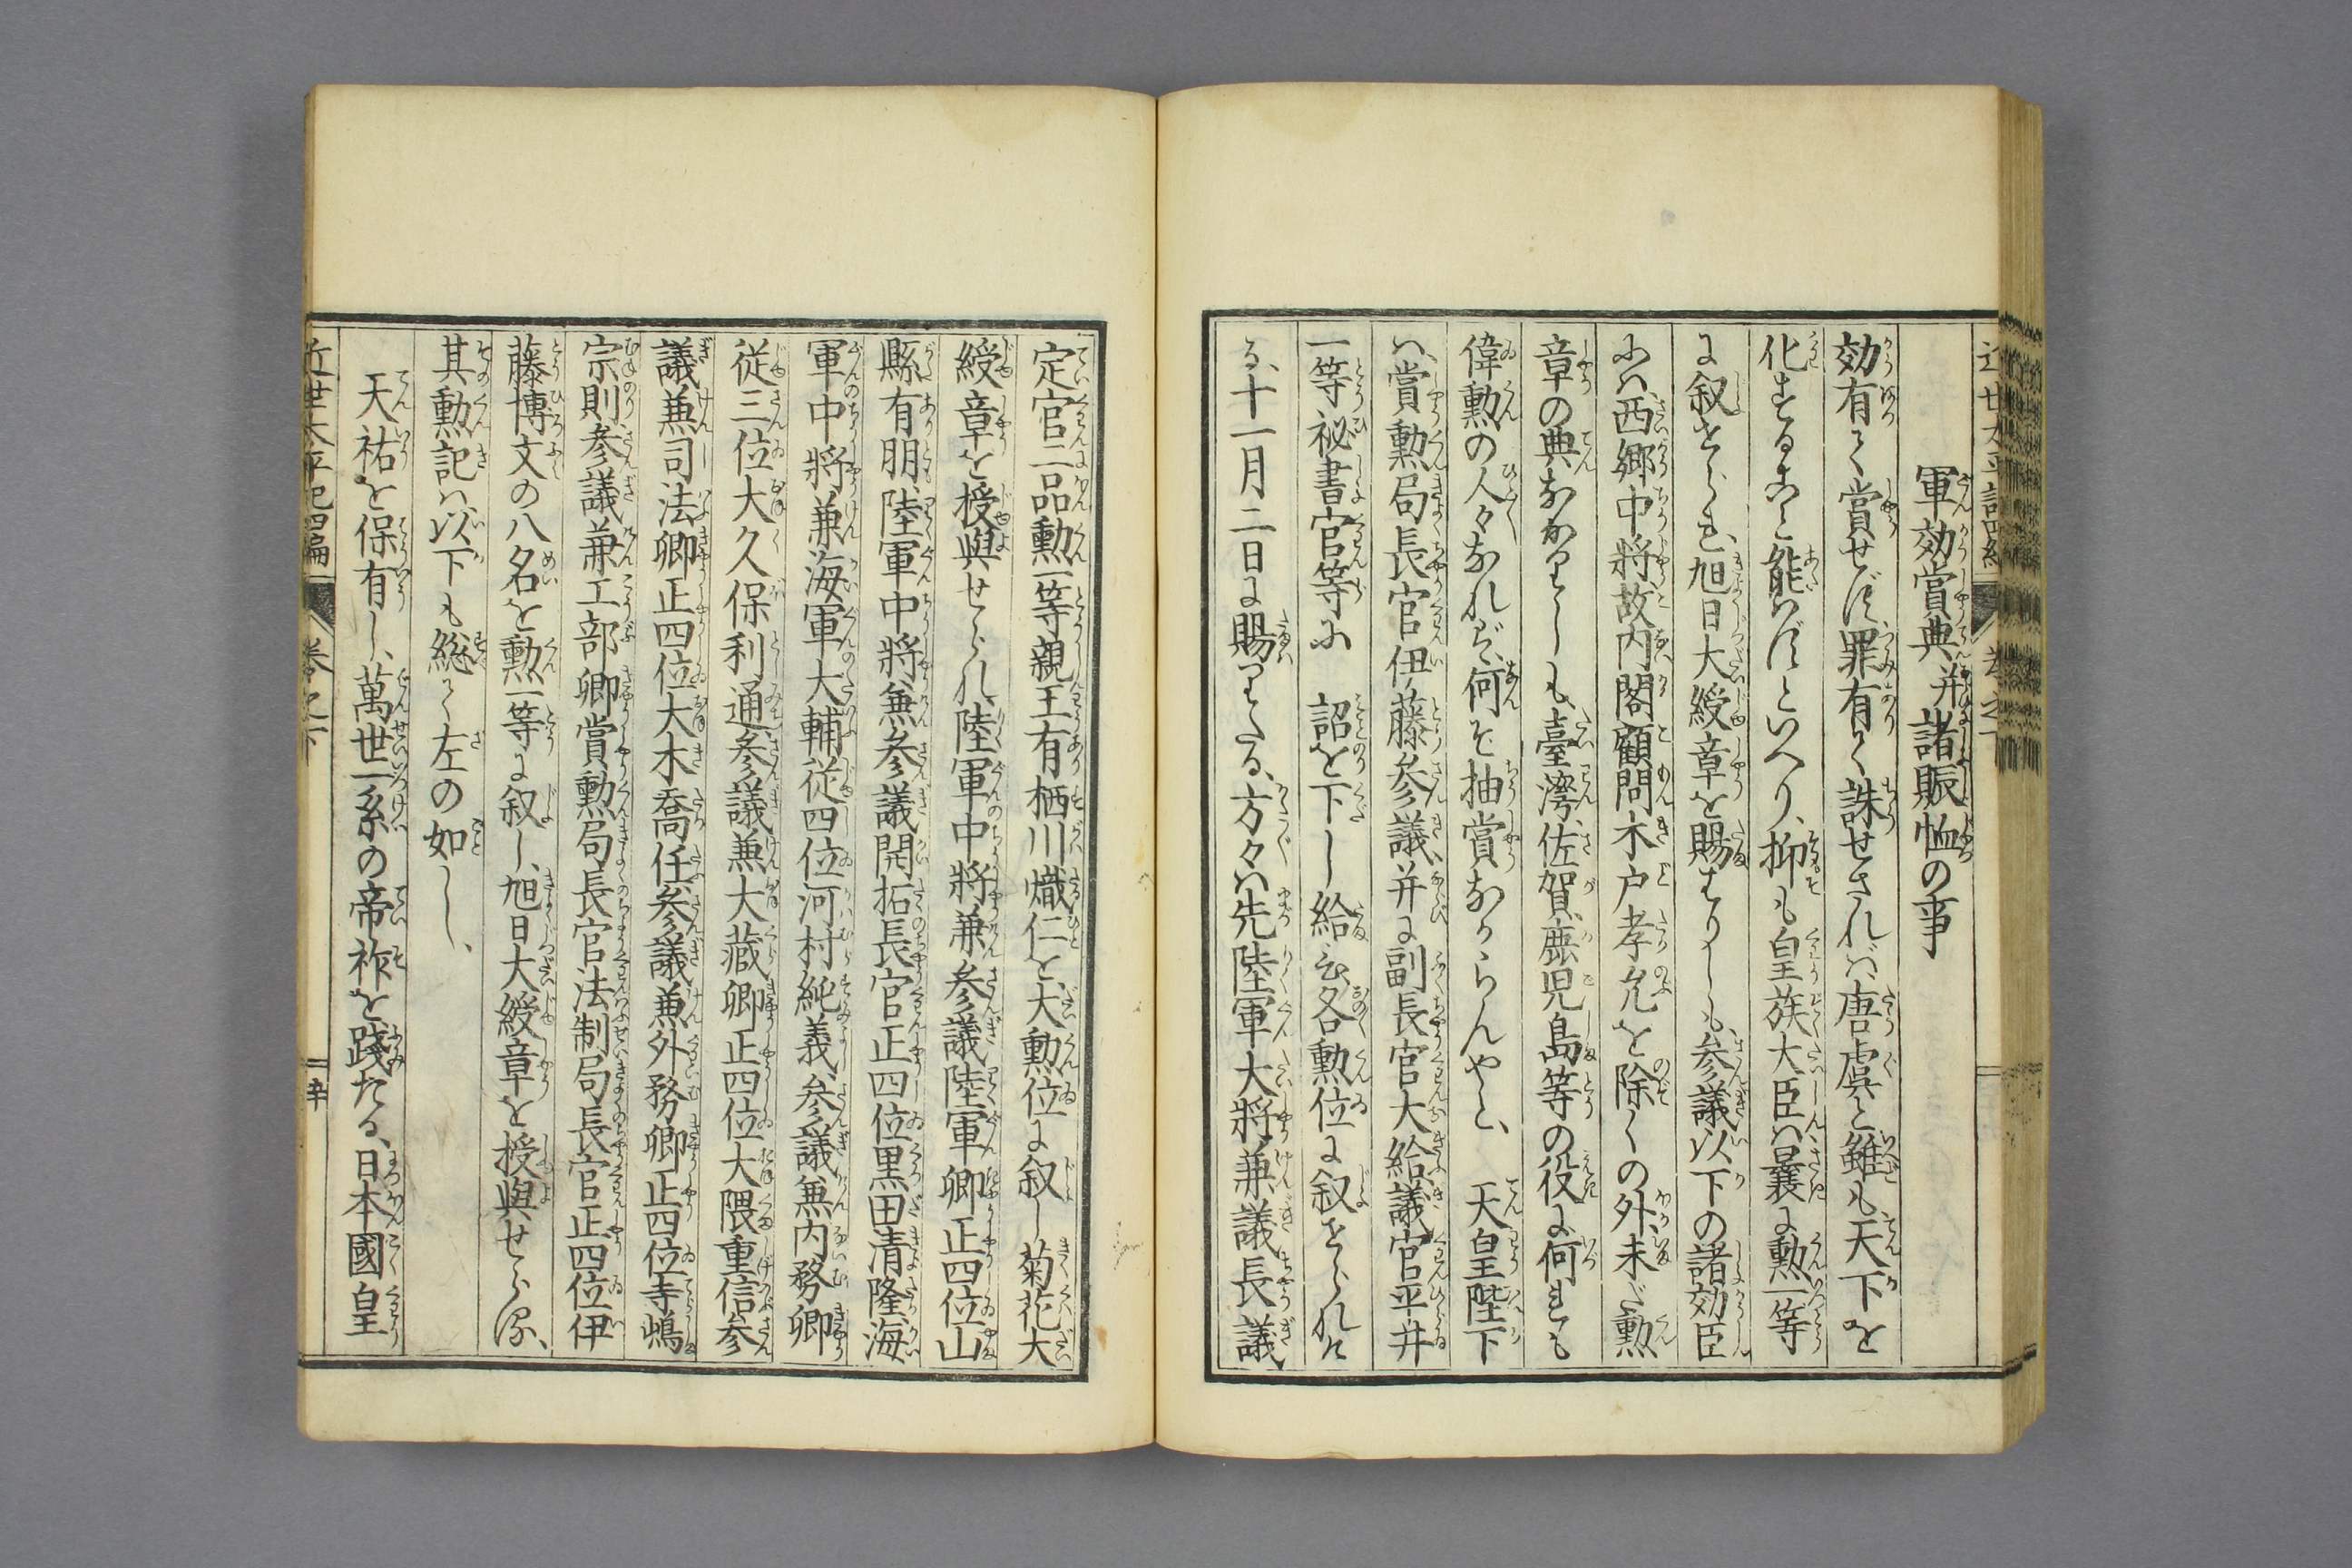 軍効賞典并諸賑恤の事
効有て賞せず罪有て誅せされバ、唐虞と雖も天下を
化することと能はずといへり、抑も皇族大臣ハ曩に勲一等
に叙せられ、旭日大綬章を賜はりしも、参議以下の諸効臣
にハ西郷中將故内閣顧問木戸孝允を除くの外未だ勲
章の典なかりしも、臺灣、佐賀、鹿児島等の役に何れも
偉勲の人々なれバ、何ぞ抽賞なからんやと、天皇陛下
ハ、賞勲局長官伊藤参議、并に副長官大給議官平井
一等祕書官等に 詔を下し給ひ各勲位に叙せられた
る、十一月二日に賜りたる、方々ハ先陸軍大將兼議長議
定官二品勲一等親王有栖川熾仁を、大勲位に叙し菊花大
綬章を授與せられ陸軍中將兼参議陸軍卿正四位山
縣有朋、陸軍中將兼参議開拓長官正四位黒田清隆、海
軍中將兼海軍大輔従四位河村純義、参議兼内務卿
従三位大久保利通、参議兼大藏卿正四位大隈重信、参
議兼司法卿正四位大木喬任、参議兼外務卿正四位寺嶋
宗則、参議兼工部卿賞勲局長官法制局長官正四位伊
藤博文の八名を勲一等に叙し、旭日大綬章を授與せらる、
其勲記ハ以下も総て左の如し、
天祐を保有し、萬世一系の帝祚を踐たる、日本國皇
近世太平記四編 巻之下